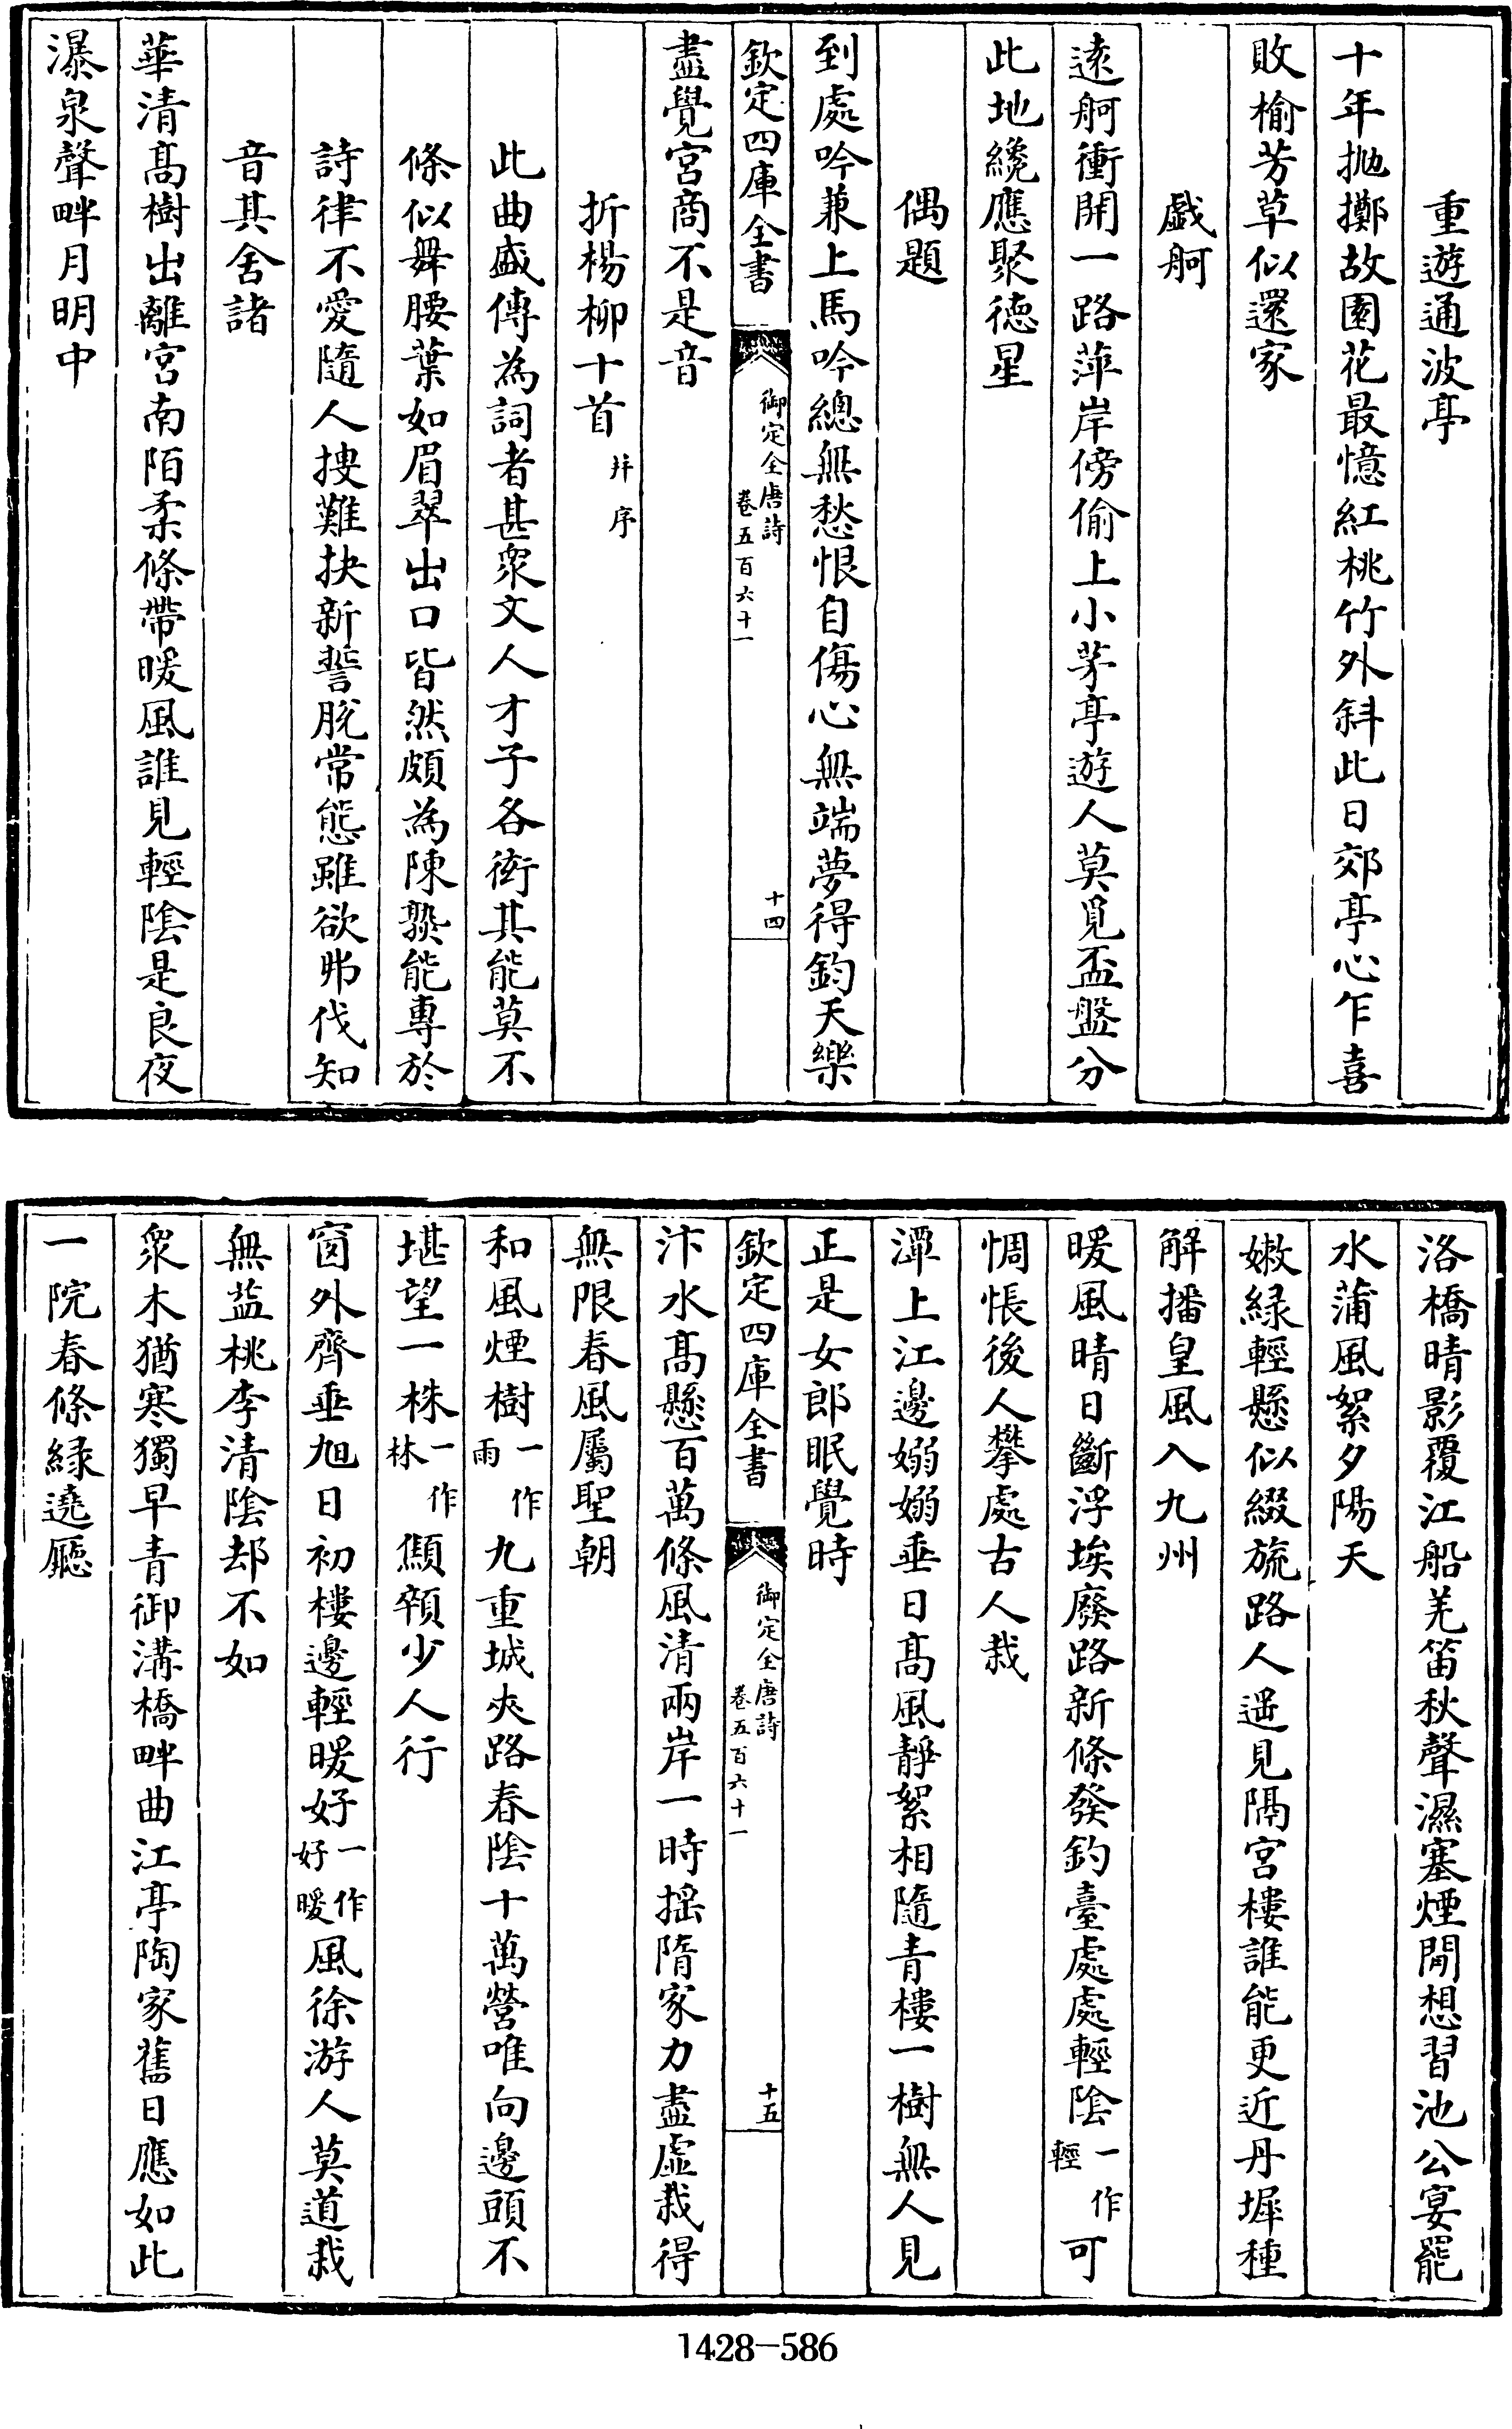 重遊通波亭
十年抛擲故園花最憶紅桃竹外斜此日郊亭心乍喜
敗榆芳草似還家
戯舸
逺舸衝開一路萍岸傍偷上小茅亭遊人莫覓盃盤分
此地纔應聚徳星
偶題
到處吟兼上馬吟總無愁恨自傷心無端夢得鈞天樂
欽定四庫全書
御定全唐詩
卷五百六十一
十四
盡覺宮商不是音
折楊柳十首并序
此曲盛傳為詞者甚衆文人才子各衒其能莫不
條似舞腰葉如眉翠出口皆然頗為陳熟能專於
詩律不愛隨人搜難抉新誓脫常態雖欲弗伐知
音其舍諸
華清髙樹出離宮南陌柔條帶暖風誰見輕陰是良夜
瀑泉聲畔月明中
洛橋晴影覆江船羌笛秋聲濕塞煙閒想習池公宴罷
水蒲風絮夕陽天
嫩緑輕懸似綴旒路人遥見隔宮樓誰能更近丹墀種
解播皇風入九州
暖風晴日斷浮埃廢路新條發釣臺處處輕陰一作輕可
惆悵後人攀處古人栽
潭上江邊嫋嫋垂日髙風靜絮相隨青樓一樹無人見
正是女郎眠覺時
欽定四庫全書
御定全唐詩
卷五百六十一
十五
汴水髙懸百萬條風清兩岸一時揺隋家力盡虛栽得
無限春風屬聖朝
和風煙樹一作雨九重城夾路春陰十萬營唯向邊頭不
堪望一株一作林顦顇少人行
窗外齊垂旭日初樓邊輕暖好一作好暖風徐游人莫道栽
無益桃李清陰却不如
衆木猶寒獨早青御溝橋畔曲江亭陶家舊日應如此
一院春條緑遶廳
1428-586